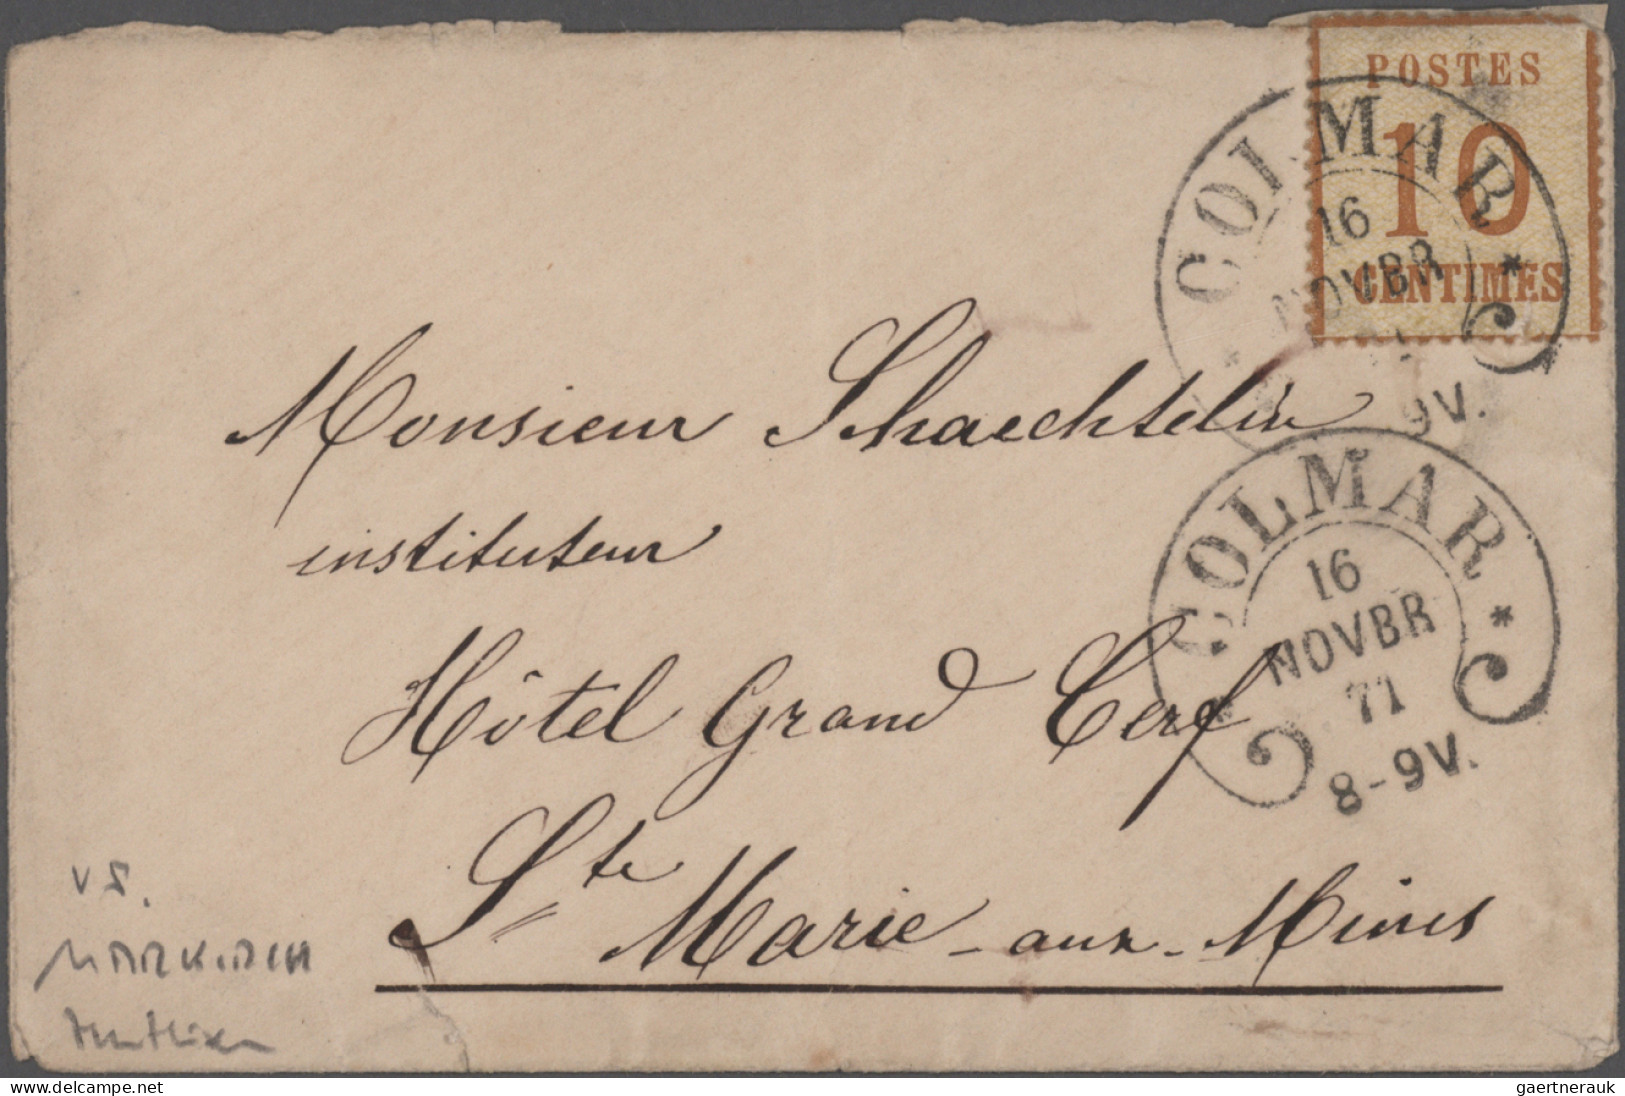 POSTES
10
CENTIMES
COLMAR
16
NOVBR
9V.
Monsieur Schaechtelin
instituteur
COLMAR
16
NOVBR
71
8-9V.
Hôtel Grand Cerf
Ste Marie-aux-Mines
VS.
MARKIRCH
www.delcampe.net
gaertnerauk